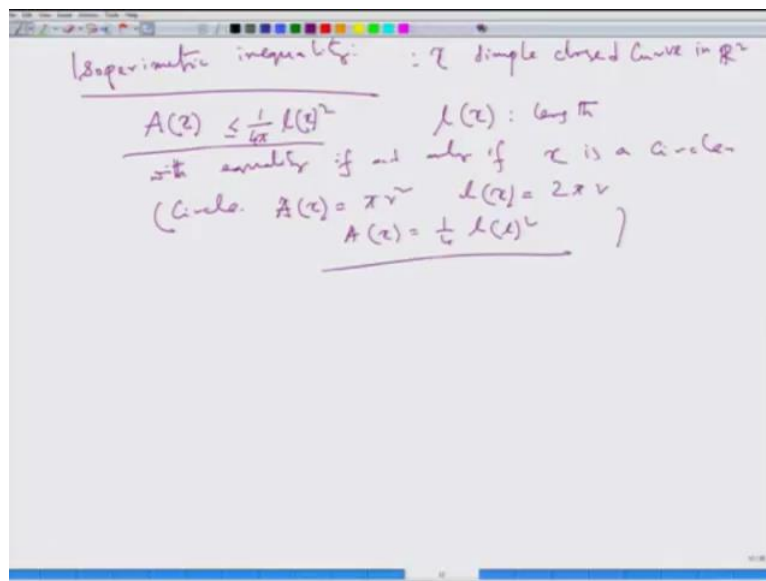 Isoperimetric inequality : γ simple closed curve in ℝ²
A(γ) ≤ 1/4π l(γ)² l(γ) : length
with equality if and only if γ is a circle
(Circle. A(γ) = πr² l(γ) = 2πr
A(γ) = 1/4 l(l)² )